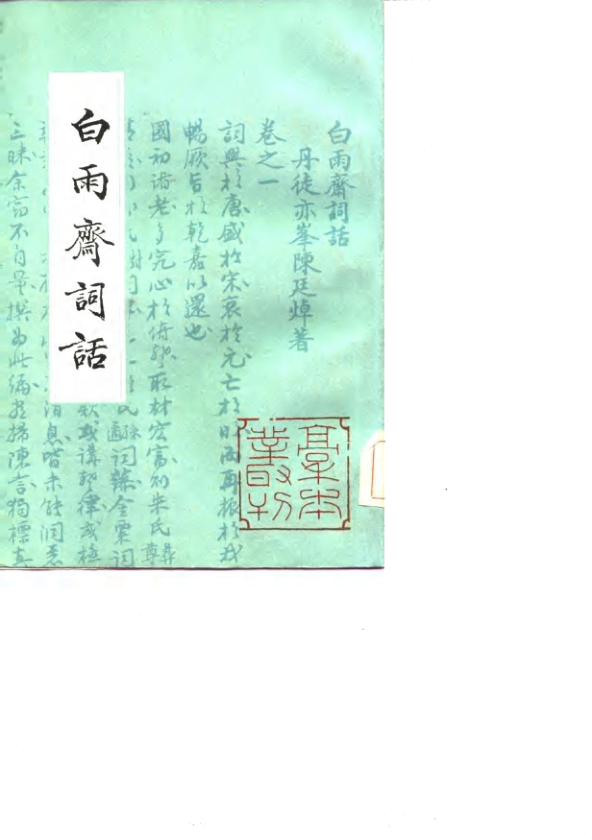 白雨齋詞話
白雨齋詞話
丹徒亦峯陳廷焯著
卷之一
詞興於唐盛於宋衰於元亡於明而再振於我
暢厥旨於乾嘉以還也
國初諸老多究心於倚聲取材宏富則朱氏彝尊
詞綜金粟詞
或講聲律或極
消息皆未能洞悉
三昧余竊不自量撰為此編盡掃陳言獨標真